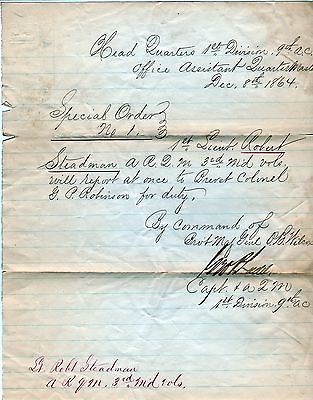 Head Quarters 1st Division, 9th A.C.
Office Assistant Quarter
Dec, 8th 1864.
Special Order
No 1.
1st Lieut. Robert
Steadman A R Q M 3rd Md vols,
will report at once to Brevet Colonel
G. P. Robinson for duty,
By Command of
Brvt Maj Genl O.B. Wilcox
Capt. & A Q M
1st Division, 9th A C
Lt. Robt Steadman
A R Q M. 3rd Md vols.